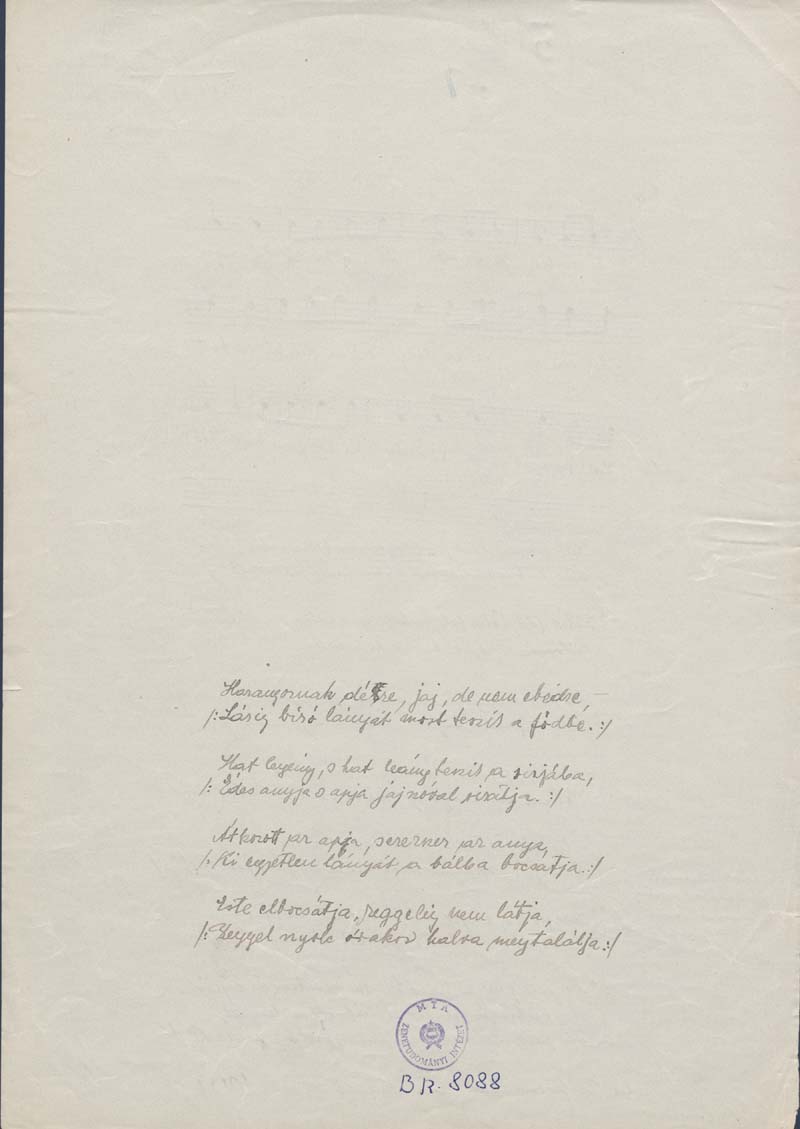 Harangoznak délre, jaj, de nem ebédre, –
/: Lásig biró lányát most teszik a födbe. :/
Hat legény, s hat leány teszik a sirjába,
/: Édes anyja s apja jajszóval siratja. :/
Átkozott az apja, az anya,
/: Ki egyetlen lányát a bálba bocsátja. :/
Este elbocsátja, reggelig nem látja,
/: Reggel nyolc órakor halva megtalálja. :/
MTA
ZENETUDOMÁNYI INTÉZET
BR. 8088